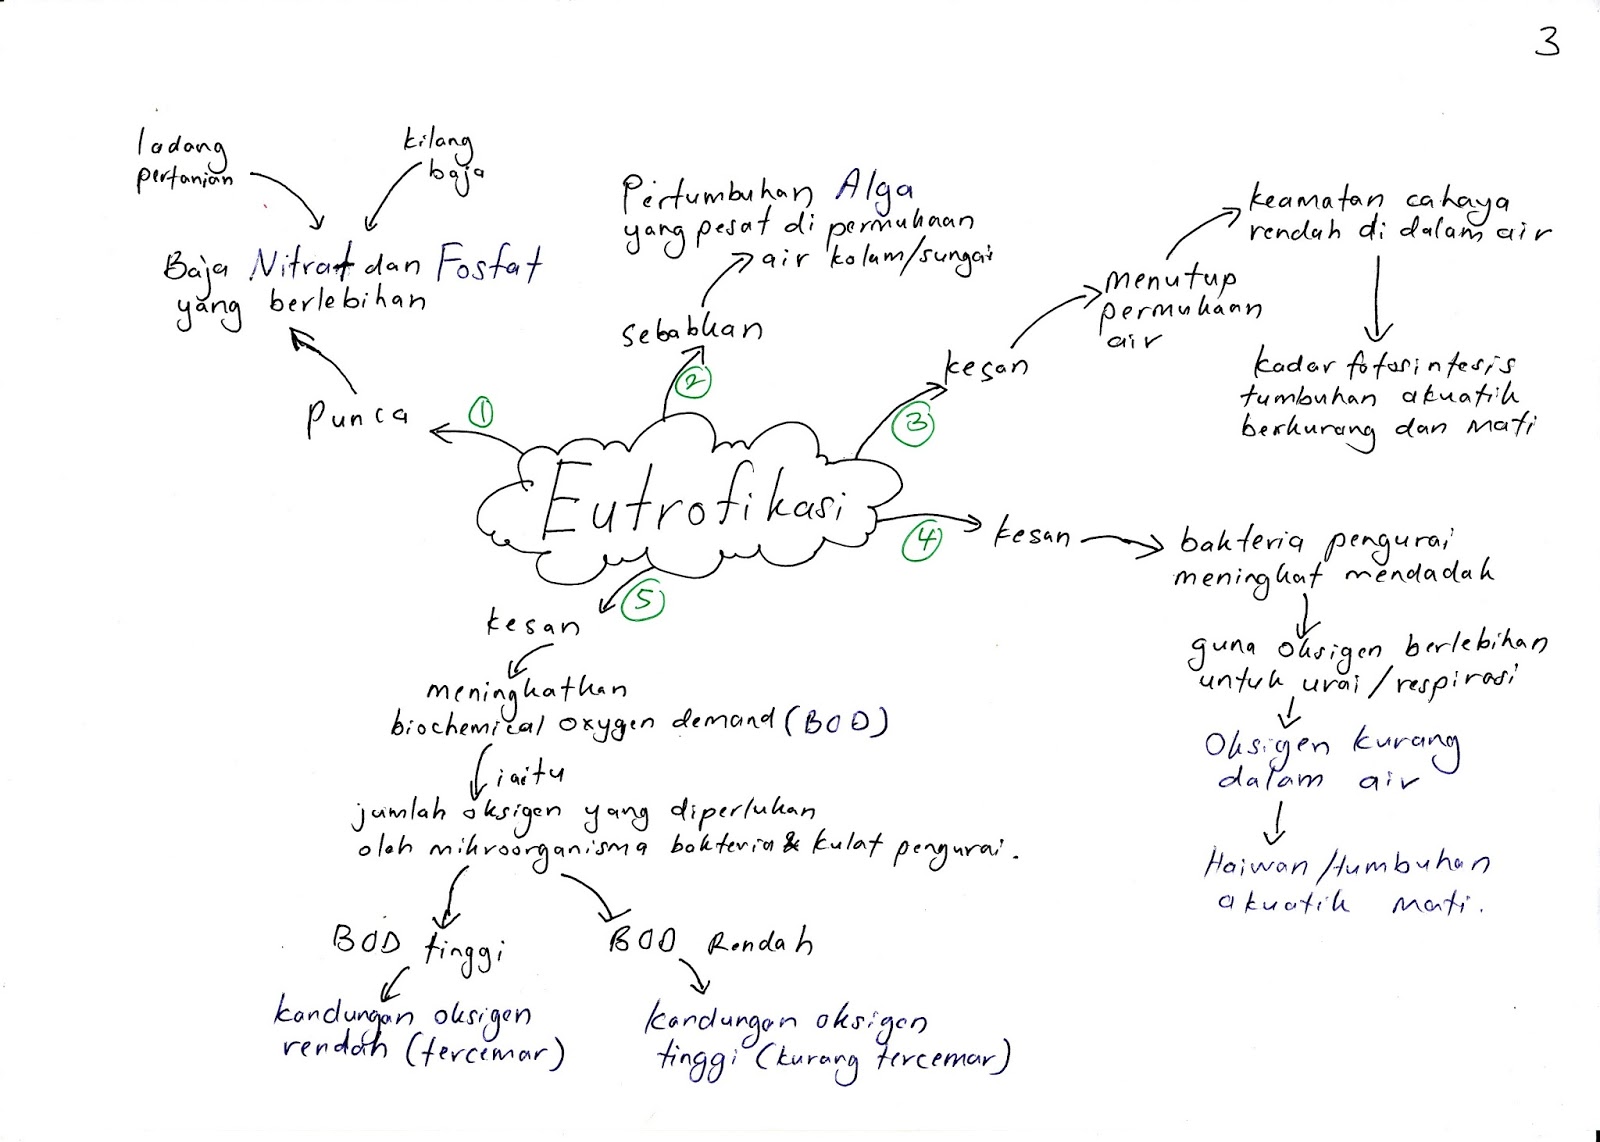 3
ladang
pertanian
kilang
baja
Baja Nitrat dan Fosfat
yang berlebihan
Punca
1
Pertumbuhan Alga
yang pesat di permukaan
air kolam/sungai
sebabkan
2
keamatan cahaya
rendah di dalam air
menutup
permukaan
air
kesan
3
kadar fotosintesis
tumbuhan akuatik
berkurang dan mati
Eutrofikasi
4
kesan
bakteria pengurai
meningkat mendadak
guna oksigen berlebihan
untuk urai/respirasi
Oksigen kurang
dalam air
Haiwan/tumbuhan
akuatik mati.
5
kesan
meningkatkan
biochemical oxygen demand (BOD)
iaitu
jumlah oksigen yang diperlukan
oleh mikroorganisma bakteria & kulat pengurai.
BOD tinggi
kandungan oksigen
rendah (tercemar)
BOD Rendah
kandungan oksigen
tinggi (kurang tercemar)